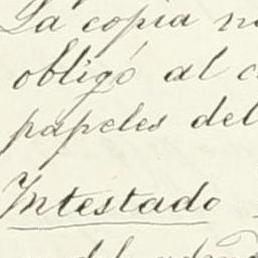 La copia
obligó al
papeles del
Intestado